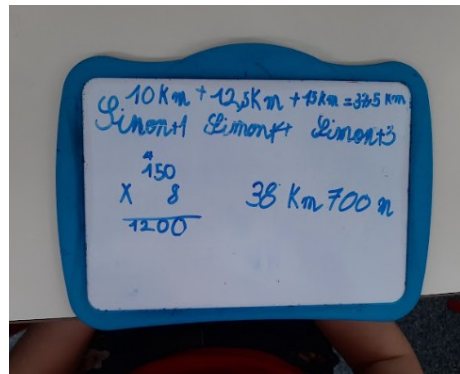 10 Km + 12,5Km + 15km = 37,5 Km
Simon+1 Simon++ Simon+3
4
150
X 8
1200
38 Km 700 m